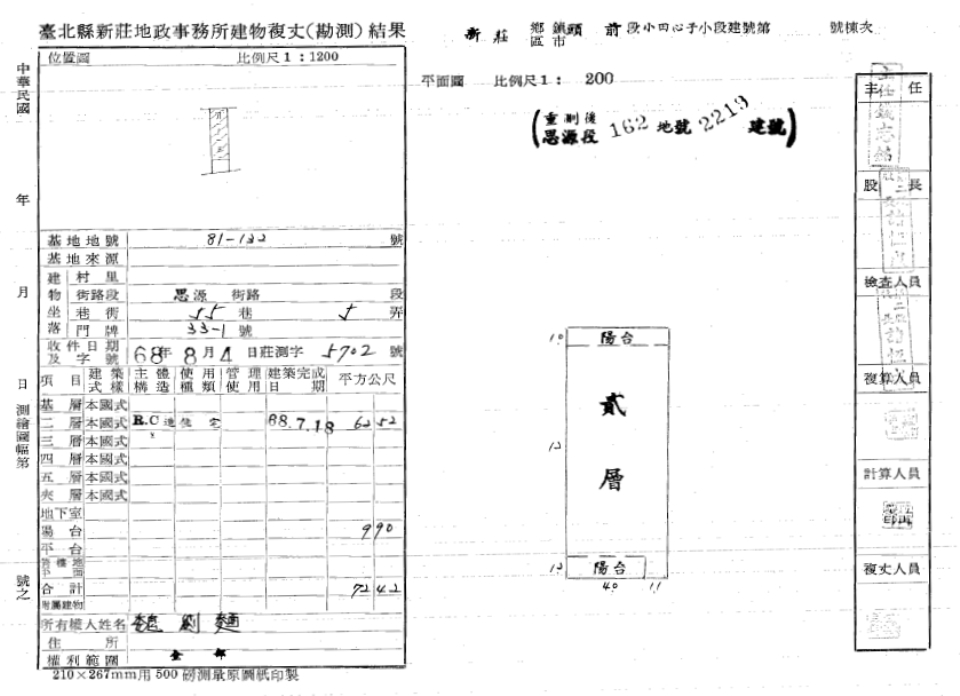 臺北縣新莊地政事務所建物複丈(勘測)結果
新莊 鄉鎮區市 頭前段小田心子小段建號第 號棟次
位置圖 比例尺1：1200
平面圖 比例尺1： 200
(重測後 思源段 162 地號 2213 建號)
中華民國 年 月 日 測繪圖幅第 號之
基地地號 81-122 號
基地來源
建物坐落 村里
街路段 思源 街路 段
巷街 55 巷 5 弄
門牌 33-1 號
收件日期及字號 68年8月4日莊測字 5702 號
項目 建築式樣 主體構造 使用種類 管理使用 建築完成日期 平方公尺
基層 本國式
二層 本國式 R.C造 住宅 68.7.18 62 52
三層 本國式
四層 本國式
五層 本國式
夾層 本國式
地下室
陽台 9 90
平台
合計 72 42
附屬建物
所有權人姓名 魏劉麵
住所
權利範圍 全部
210×267mm用500磅測量原圖紙印製
10 陽台
貳層
12
12 陽台
40 11
主任
股長
檢查人員
複算人員
計算人員
複丈人員